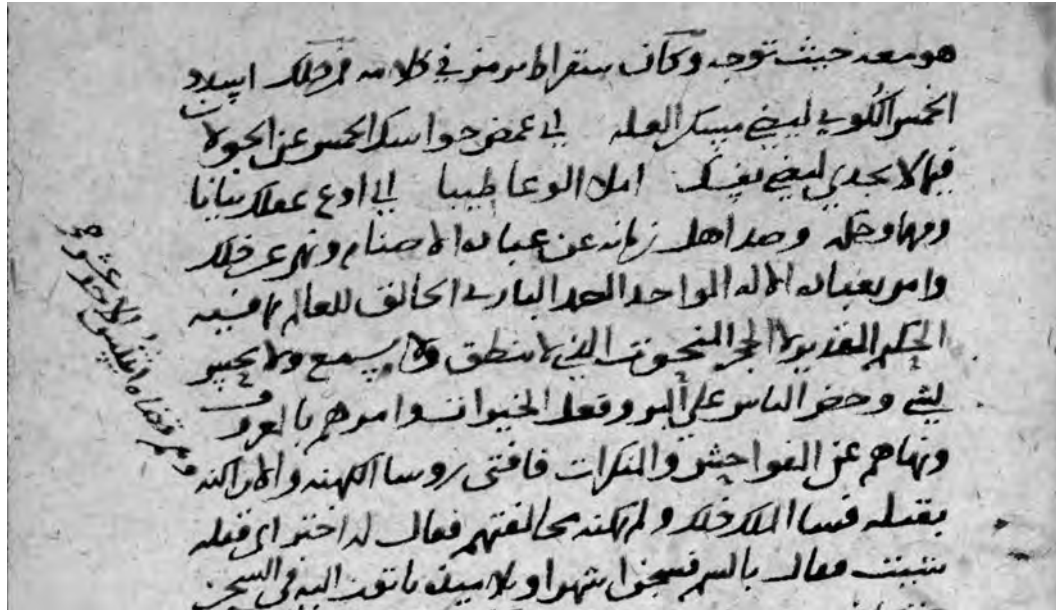 هو معه حيث توجه وكان سقراط يرمز في كلامه فمن ذلك
الخمس الكوي ليضي مسكن العله اي غمض حواسك الخمس عن الجولان
فيما لا يجدي لتضي نفسك املا الوعا طيبا اي اوع عقلك بيانا
وفهما وحكمه وصد اهل زمانه عن عباده الاصنام ونهى عن ذلك
وامر بعباده الاله الواحد الصمد الباري الخالق للعالم بما فيه
الحكيم القدير لا الحجر المنحوت الذي لا ينطق ولا يسمع ولا يحس
بشي وحض الناس على البر وفعل الخيرات وامرهم بالمعروف
ونهاهم عن الفواحش والمنكرات فافتى روسا الكهنه والاراكنه
بقتله فسا الملك ذلك ولم يمكنه مخالفتهم فقال له اختر اي قتله
شيت فقال بالسم فسجن اشهرا وتلاميذه ياتون اليه في السجن
وهم قضاه اثينس الاحد عشر